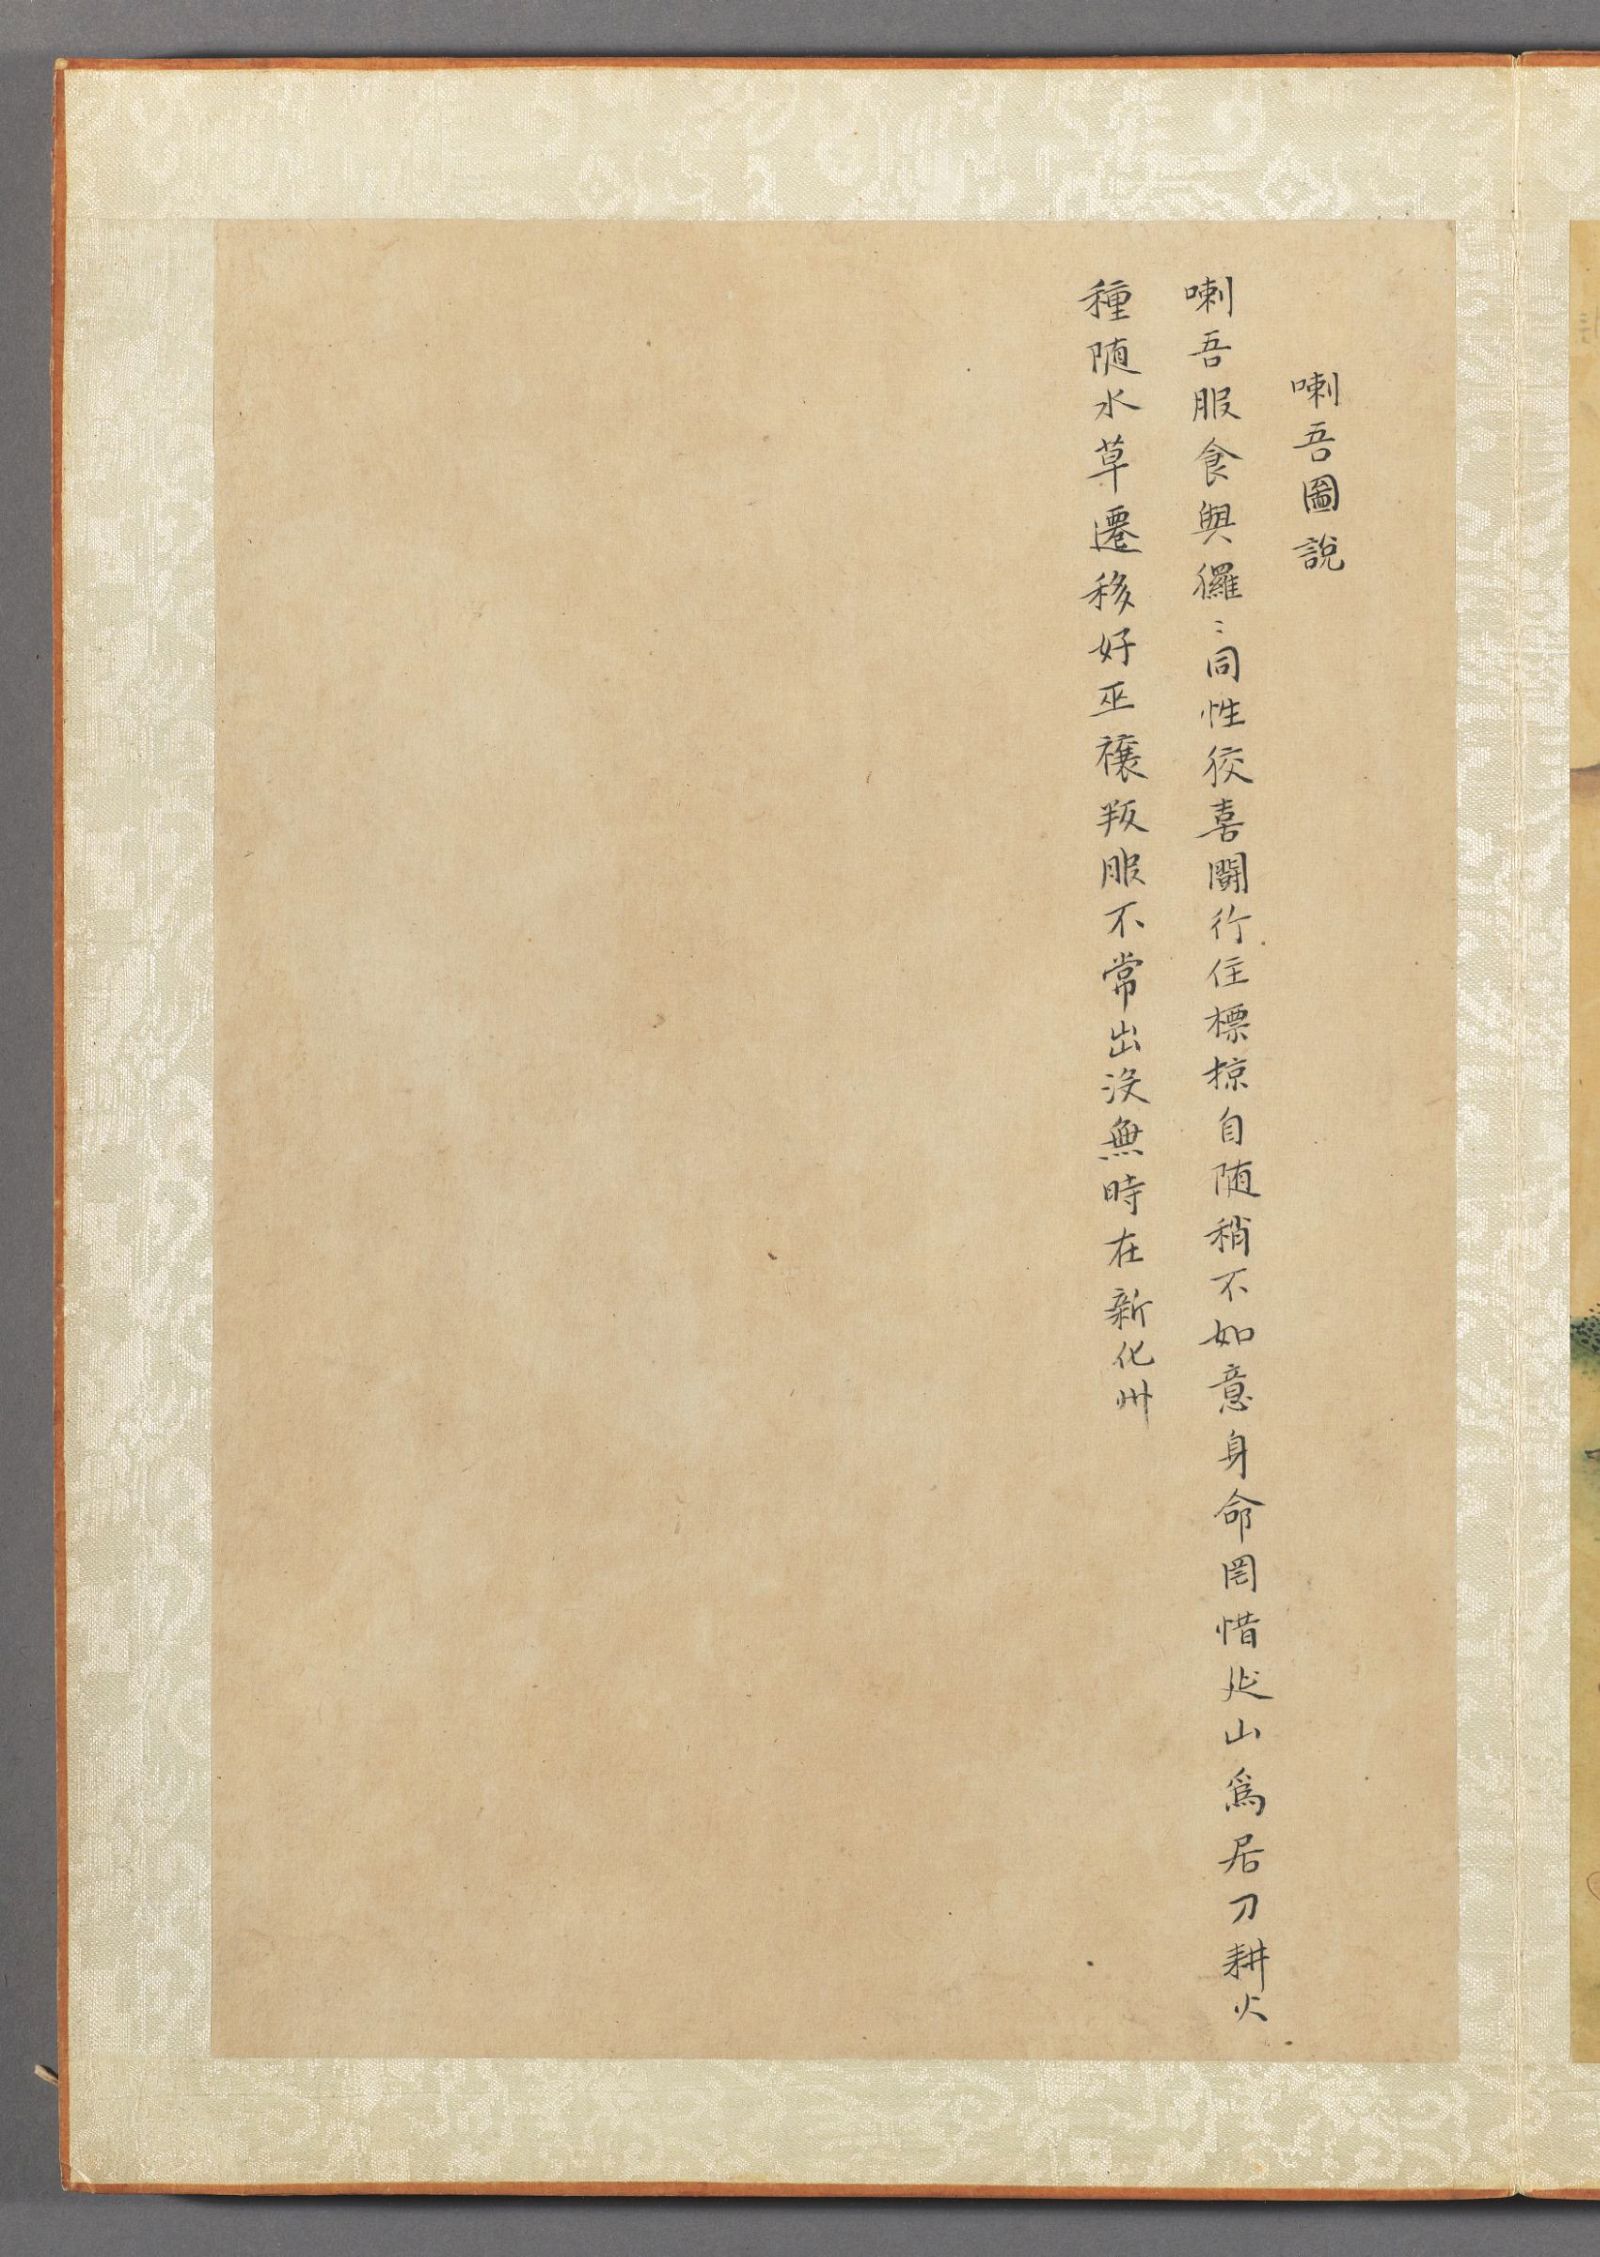 喇吾圖說
喇吾服食與玀〻同性狡喜鬭行住標掠自随稍不如意身命罔惜延山為居刀耕火
種随水草遷移好巫禳叛服不常出没無時在新化州